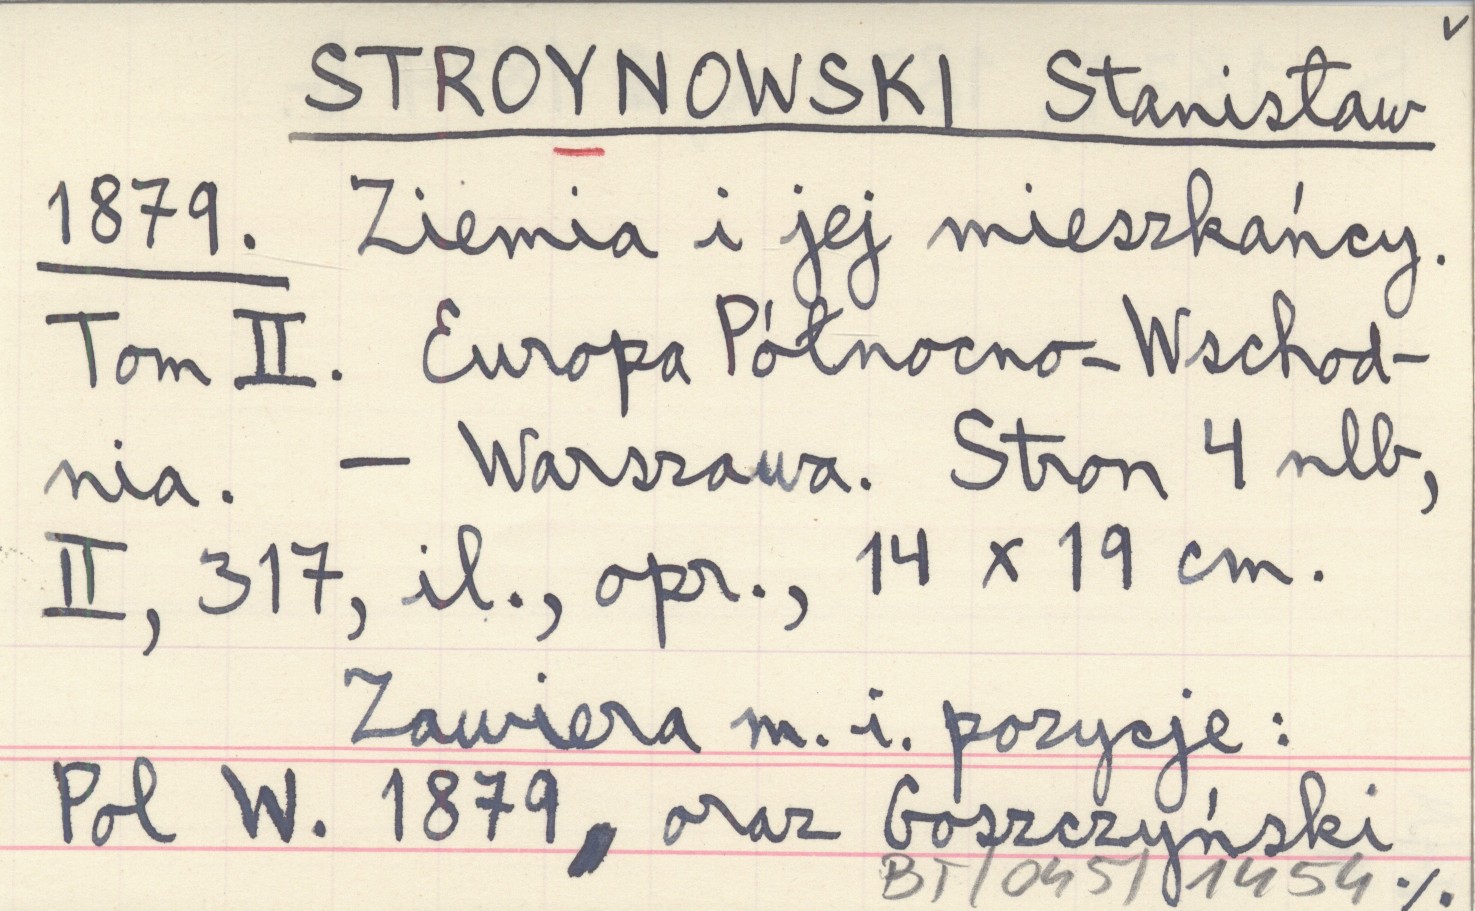 STROYNOWSKI Stanisław
1879. Ziemia i jej mieszkańcy.
Tom II. Europa Północno-Wschod-
nia. — Warszawa. Stron 4 nlb,
II, 317, il., opr., 14 x 19 cm.
Zawiera m. i. pozycje:
Pol W. 1879, oraz Goszczyński
BT/045/1454 ./.